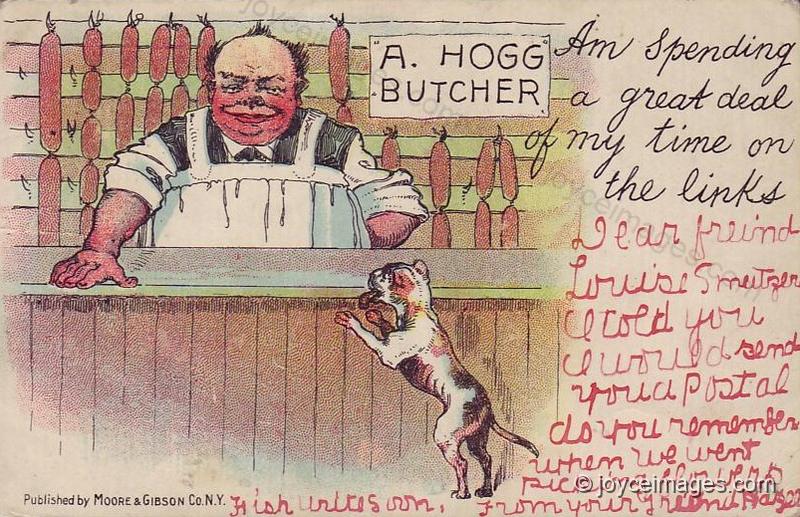 "A. HOGG"
BUTCHER
Am Spending
a great deal
of my time on
the links
Dear freind
Louise Smeitzer
I told you
I would send
you a Postal
do you remember
when we went
flowers
From your freind Hazel
Hish write soon.
Published by MOORE & GIBSON CO. N.Y.
© joyceimages.com